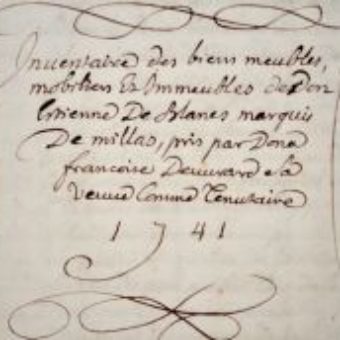 Inventaire des biens meubles,
mobiliers Et Immeubles de Don
Estienne De Blanes marquis
De millas, pris par Dona
francoise sa
Veuve Comme Tenutaire
1741